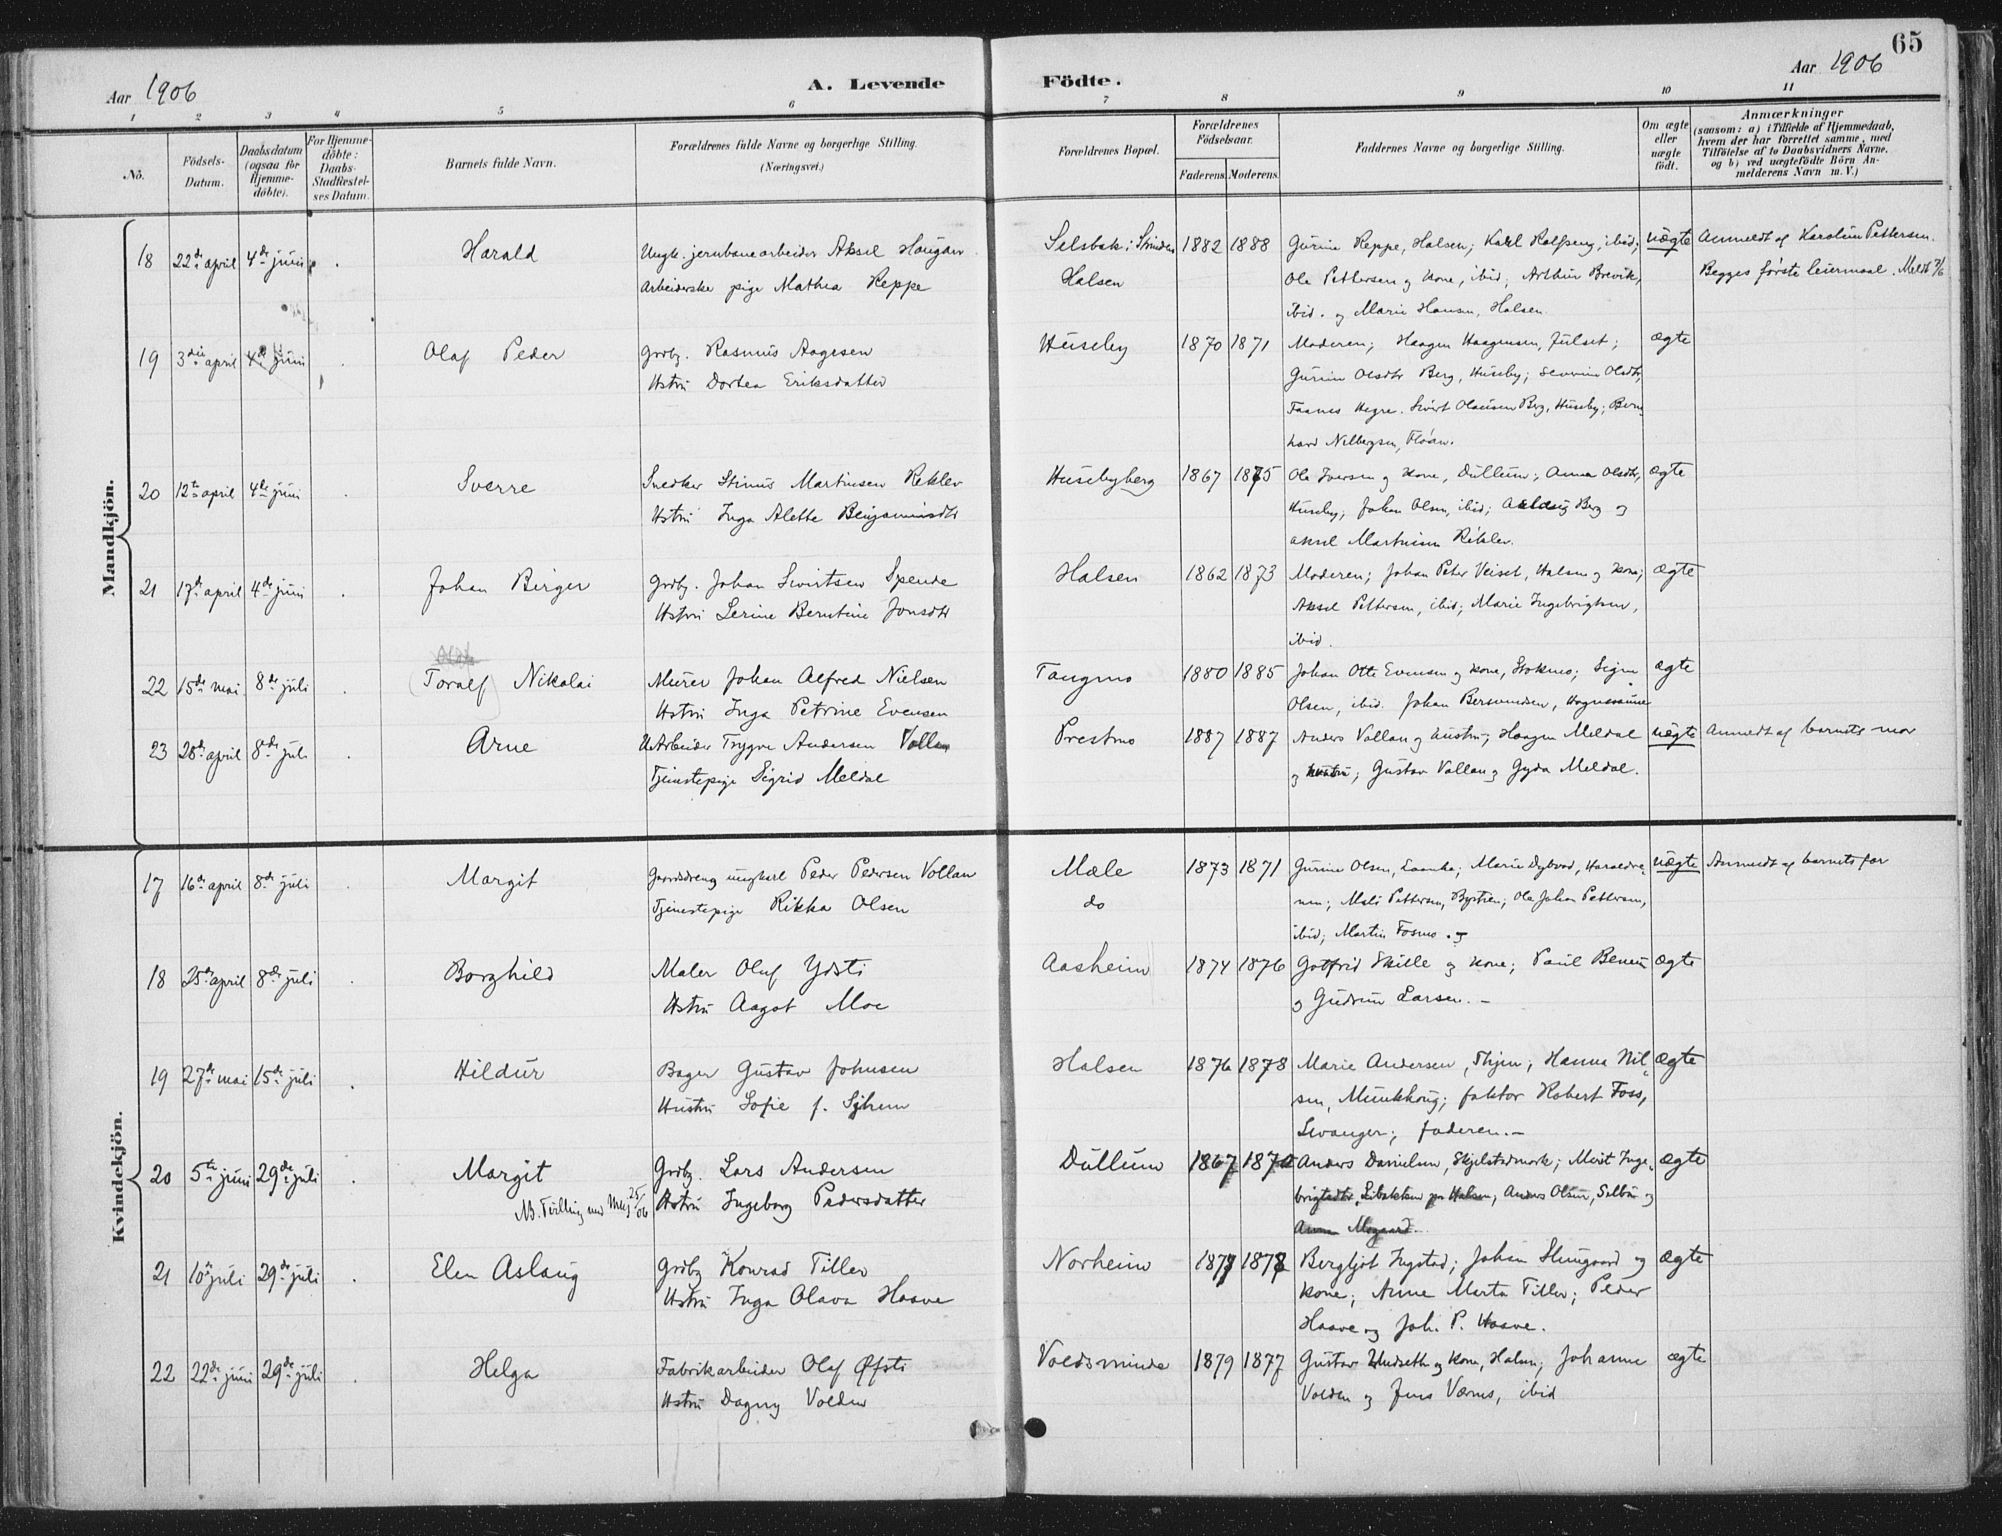 65
Aar 1906
A. Levende Födte.
Aar 1906
1 2 3 4 5 6 7 8 9 10 11
No.
Födsels-Datum.
Daabsdatum (ogsaa for Hjemme-döbte).
For Hjemme-döbte: Daabs-Stadfæstel-ses Datum.
Barnets fulde Navn.
Forældrenes fulde Navne og borgerlige Stilling. (Næringsvei.)
Forældrenes Bopæl.
Forældrenes Födselsaar.
Faderens. Moderens.
Faddernes Navne og borgerlige Stilling.
Om ægte eller uægte födt.
Anmærkninger
(saasom: a) i Tilfælde af Hjemmedaab,
hvem der har forrettet samme, med
Tilföielse af to Daabsvidners Navne.
og b) ved uægtefödte Börn An-
melderens Navn m. V.)
Mandkjön.
18 22de april 4de juni Harald Ungk. jernbanearbeider Aksel Haugan Selsbak i Strinden 1882 1888 Gurine Reppe, Halsen; Karl Rolfseng, ibid; uægte Anmeldt af Karoline Pettersen.
Arbeiderske pige Mathea Reppe Halsen Ole Pettersen og kone, ibid; Arthur Brevik, Begges første leiermaal. Meldt 7/6
ibid. og Marie Hansen, Halsen.
19 3die april 4de juni Olaf Peder Grdbr. Rasmus Aagesen Huseby 1870 1871 Moderen; Haagen Haagensen, Julset; ægte
Hstru Dortea Eriksdatter Gurine Olsdtr Berg, Huseby; Olsdtr,
Hegre. Sivert Olausen Berg, Huseby; Bern
hard Floan.
20 12te april 4de juni Sverre Snedker Martinsen Reklev Husebyberg 1867 1875 Ole Iversen og kone, Dullum; Anna Olsdtr, ægte
Hstru Inga Alette Huseby; Johan Olsen, ibid; Berg og
Aksel Martinsen Reklev.
21 17de april 4de juni Johan Birger Grdbr. Johan Sivertsen Spende Halsen 1862 1873 Moderen; Johan Peter Veiset, Halsen og kone; ægte
Hstru Serine Berntine Jonsdtr Aksel Pettersen, ibid; Marie Ingebrigtsen,
ibid.
22 15de mai 8de juli (Toralf) Nikolai Murer Johan Alfred Nielsen Tangmo 1880 1885 Johan Otto Evensen og kone, Stokmo; Signe ægte
Hstru Inga Petrine Evensen Olsen, ibid. Johan
23 28de april 8de juli Arne U.Arbeider Trygve Andersen Vollan Prestmo 1887 1887 Anders Vollan og hustru; Haagen Meldal uægte Anmeldt af barnets mor
Tjenestepige Sigrid Meldal og hustru; Gustav Vollan og Gyda Meldal.
Kvindekjön.
17 16de april 8de juli Margit Gaardsdreng ungkarl Peder Pedersen Vollan Mæle 1873 1871 Gurine Olsen, Laanke; Marie Dybvad, uægte Anmeldt af barnets far
Tjenestepige Rikka Olsen do Pettersen, Ole Johan Pettersen,
ibid; Martin Fosmo.
18 25de april 8de juli Borghild Maler Oluf Ydsti Aasheim 1874 1876 Gotfrid Skille og kone; Paul ægte
Hstru Aagot Moe og Gudrun Larsen.
19 27de mai 15de juli Hildur Bager Gustav Johnsen Halsen 1876 1878 Marie Andersen, Hanna Nil ægte
Hustru Sofie f. sen, Munkhaug; faktor Robert Foss,
Levanger; faderen.
20 5te juni 29de juli Margit Grdbr. Lars Andersen Dullum 1867 1870 Anders Danielsen, Skjelstadmark; Inge- ægte
NB. Tvilling Hstru Ingeborg Pedersdatter brigtsdtr, Halsen, Anders Olsen, Selbu og
Anna
21 10de juli 29de juli Elen Aslaug Grdbr Konrad Tiller Norheim 1877 1878 Bergljot Ingstad; Johan og ægte
Hstru Inga Olava Haave kone; Anne Marta Tiller; Peder
Haave og Joh. P. Haave.
22 22de juni 29de juli Helga Fabrikarbeider Olaf Øfsti Voldsminde 1879 1877 Gustav og kone, Halsen; Johanne ægte
Hstru Dagny Volden Volden og Jens Værnes, ibid